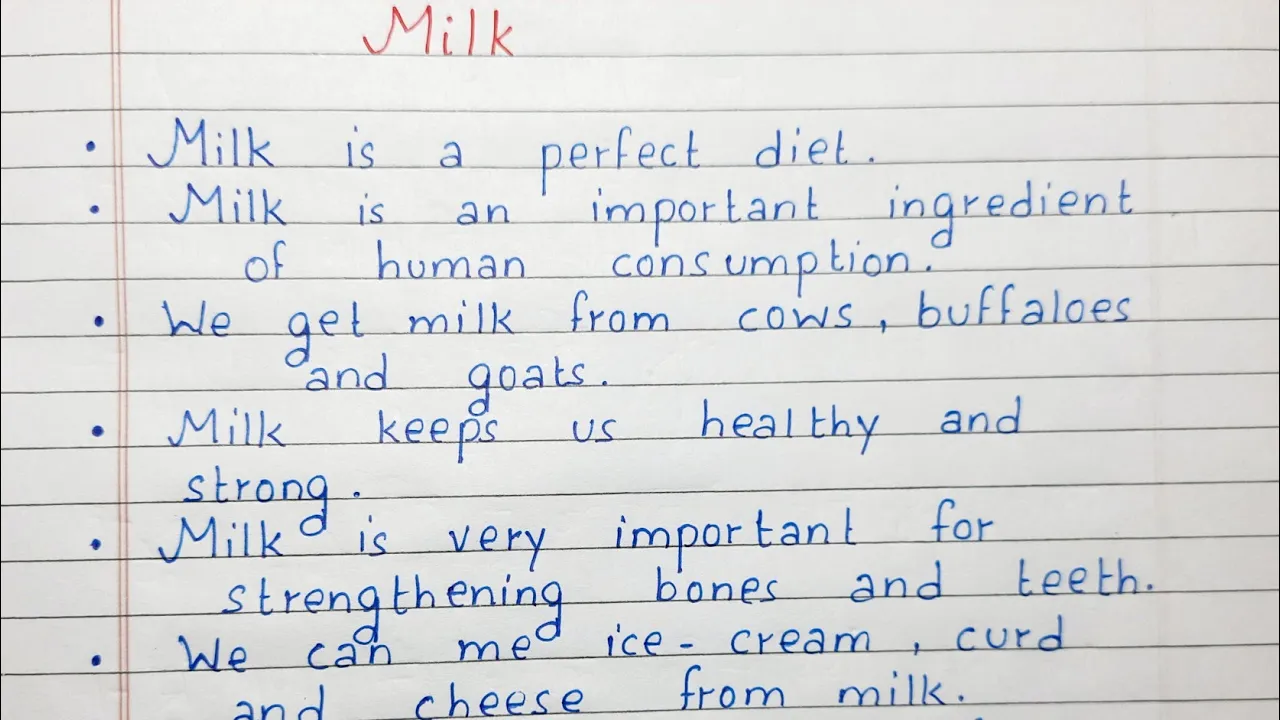 Milk
• Milk is a perfect diet.
• Milk is an important ingredient
of human consumption.
• We get milk from cows, buffaloes
and goats.
• Milk keeps us healthy and
strong.
• Milk is very important for
strengthening bones and teeth.
• We can me ice-cream, curd
and cheese from milk.